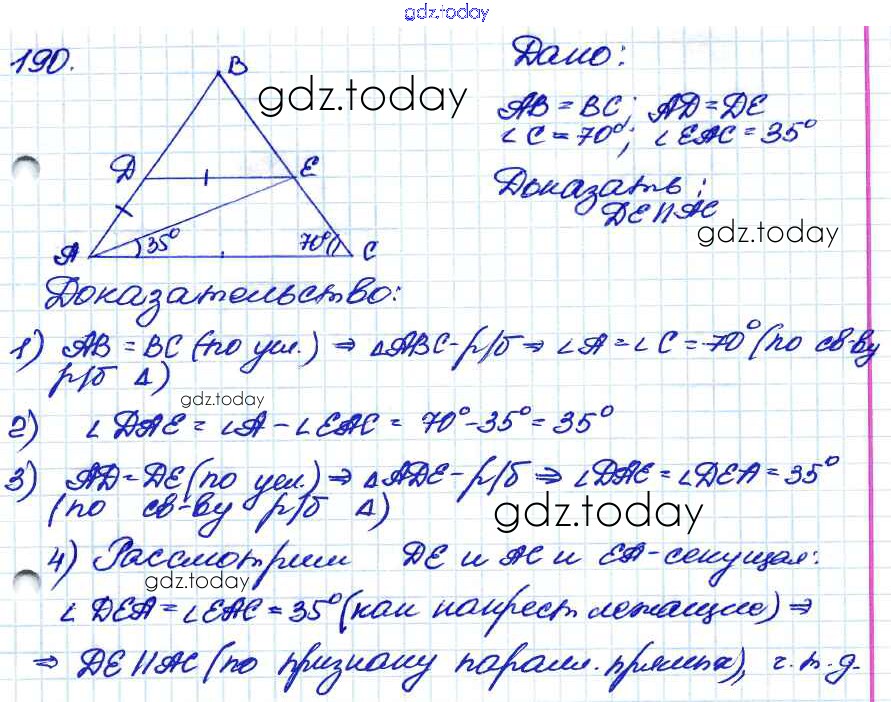 gdz.today
190.
B
gdz.today
D
E
A
35°
70°
C
Дано:
AB = BC; AD = DE
∠C = 70°; ∠EAC = 35°
Доказать:
DE || AC
gdz.today
Доказательство:
1) AB = BC (по усл.) ⇒ △ABC - р/б ⇒ ∠A = ∠C = 70° (по св-ву
р/б △)
gdz.today
2) ∠DAE = ∠A - ∠EAC = 70° - 35° = 35°
3) AD = DE (по усл.) ⇒ △ADE - р/б ⇒ ∠DAE = ∠DEA = 35°
(по св-ву р/б △)
gdz.today
4) Рассмотрим DE и AC и EA - секущая:
gdz.today
∠DEA = ∠EAC = 35° (как накрест лежащие) ⇒
⇒ DE || AC (по признаку паралл. прямых), ч.т.д.